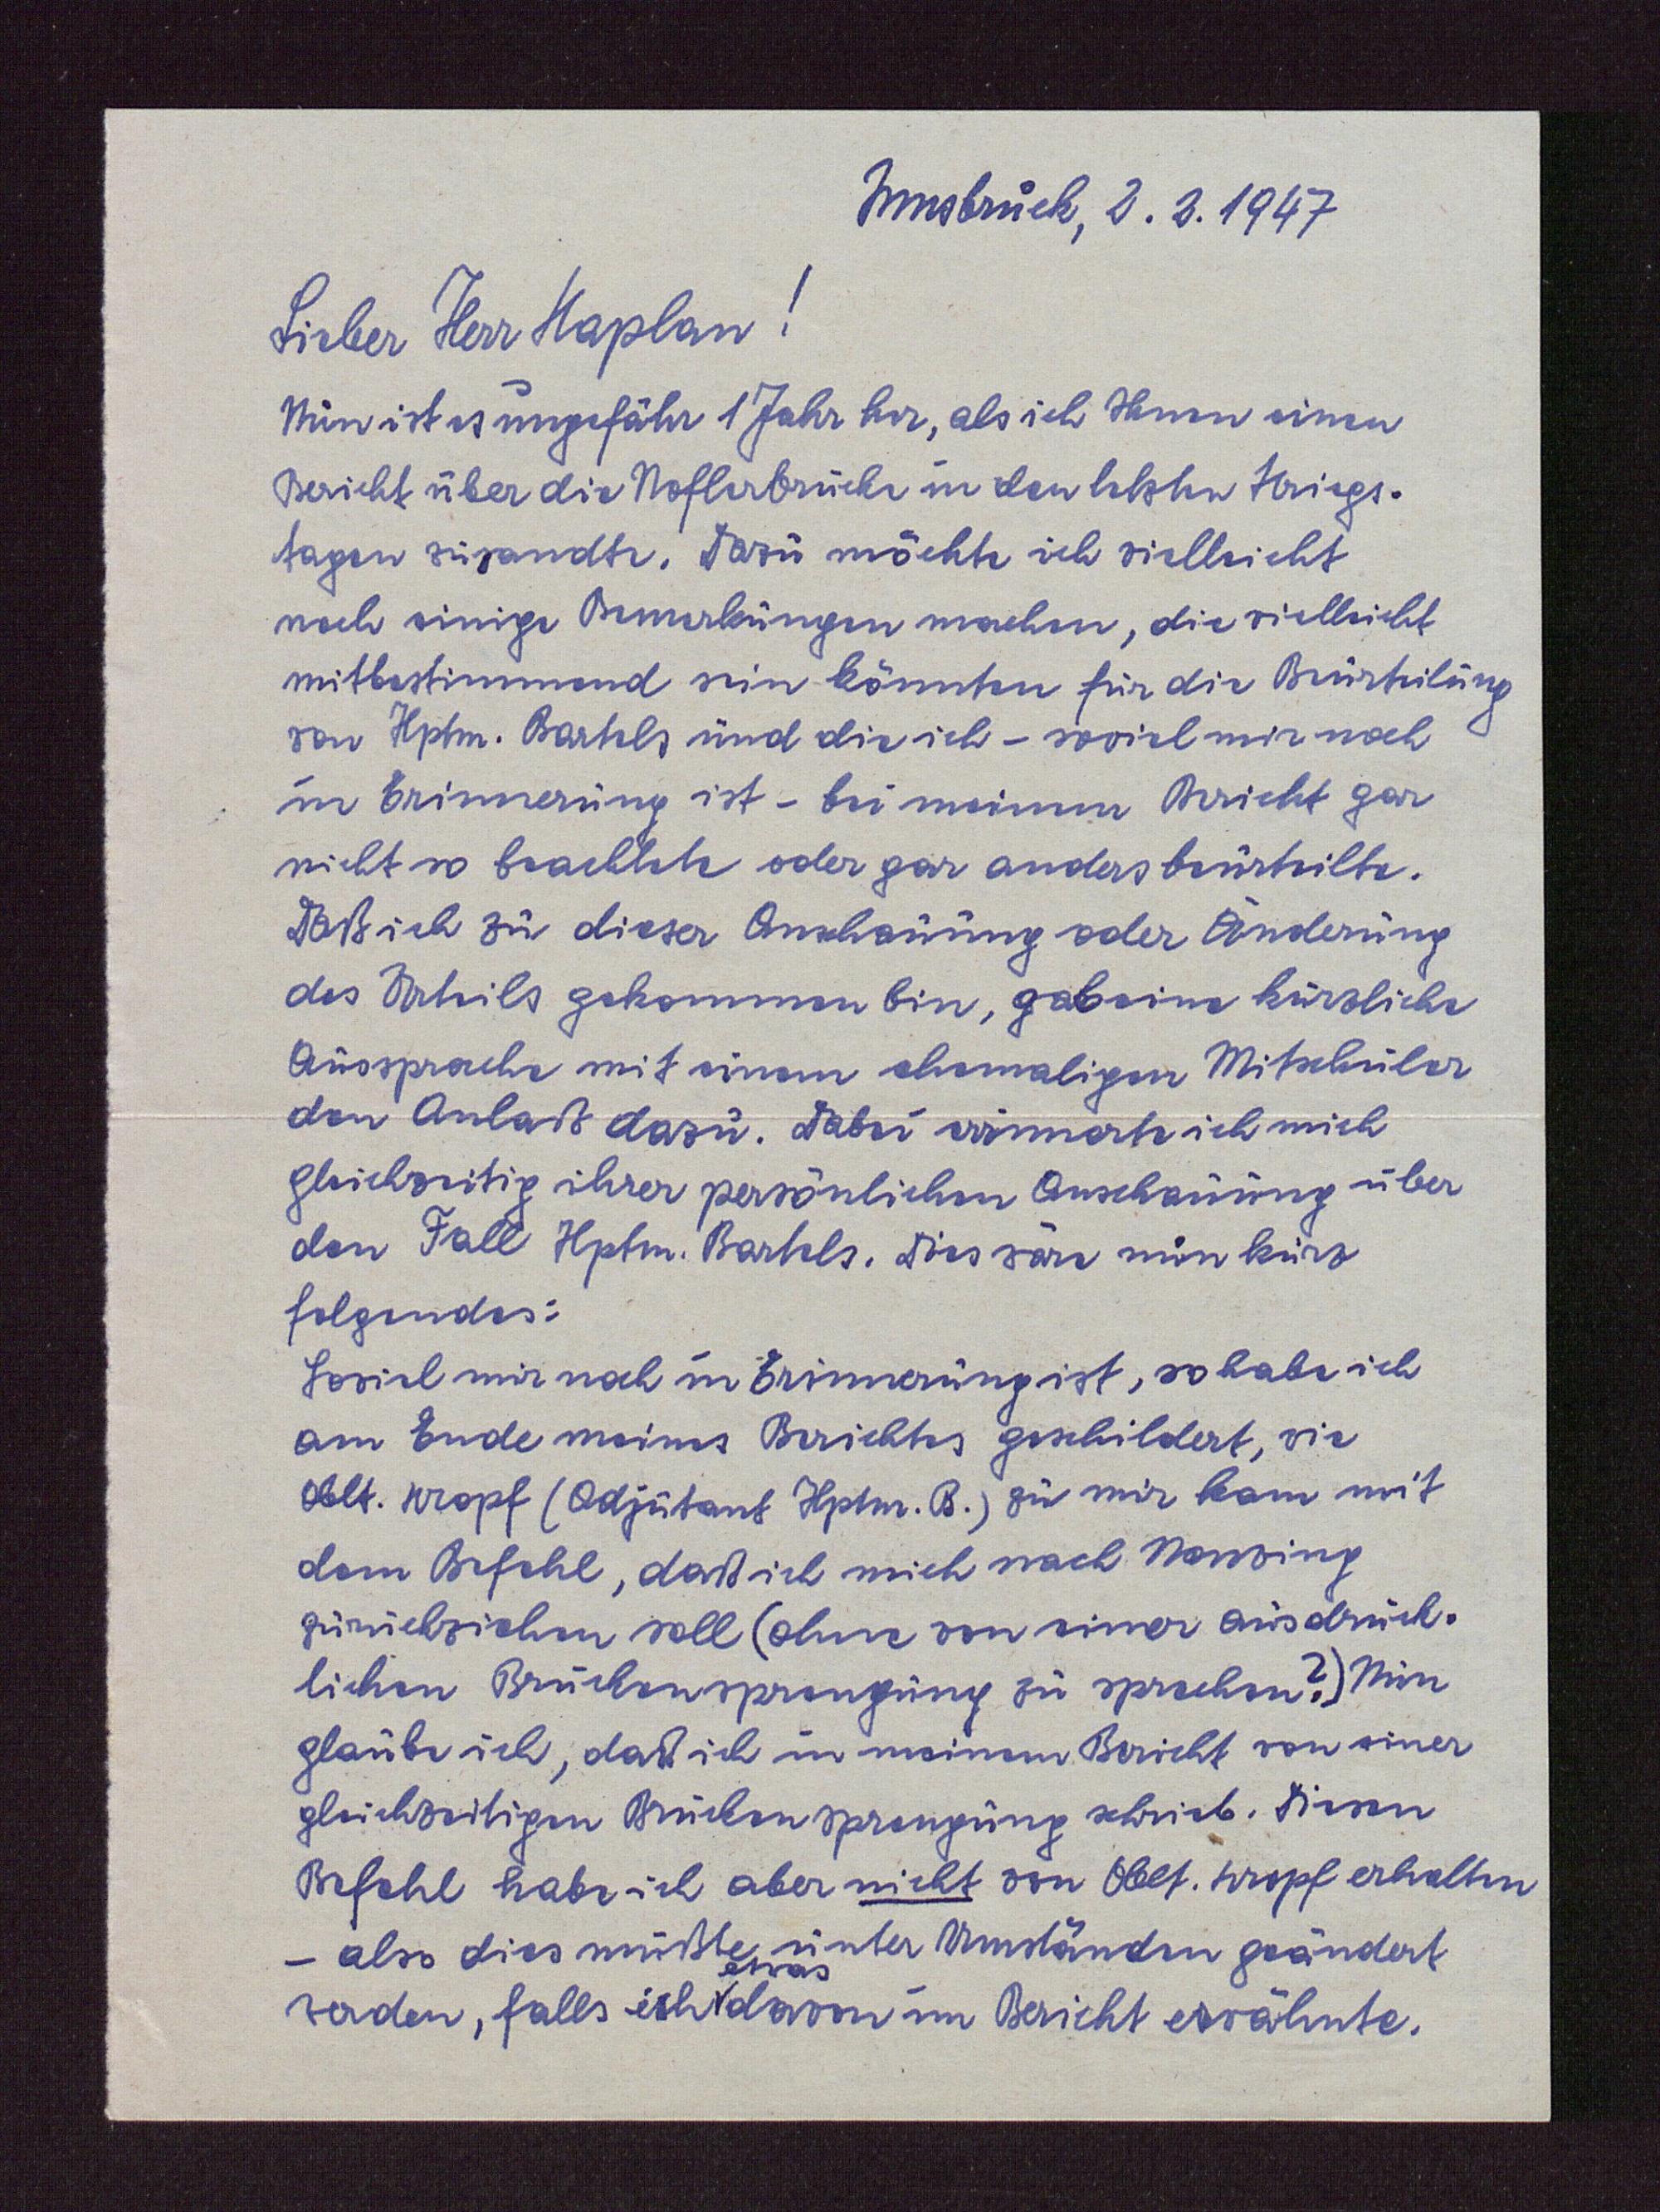 Innsbruck, 2. 2. 1947
Lieber Herr Kaplan!
Nun ist es ungefähr 1 Jahr her, als ich Ihnen einen
Bericht über die Noflerbrücke in den letzten Kriegs-
tagen zusandte. Dazu möchte ich vielleicht
noch einige Bemerkungen machen, die vielleicht
mitbestimmend sein könnten für die Beurteilung
von Hptm. Bartels und die ich - soviel mir noch
in Erinnerung ist - bei meinem Bericht gar
nicht so beachtete oder gar anders beurteilte.
Daß ich zu dieser Anschauung oder Änderung
des Urteils gekommen bin, gab eine kürzliche
Aussprache mit einem ehemaligen Mitschüler
den Anlaß dazu. Dabei erinnerte ich mich
gleichzeitig ihrer persönlichen Anschauung über
den Fall Hptm. Bartels. Dies wäre nun kurz
folgendes:
Soviel mir noch in Erinnerung ist, so habe ich
am Ende meines Berichtes geschildert, wie
Oblt. Kropf (Adjutant Hptm. B.) zu mir kam mit
dem Befehl, daß ich mich nach Nenzing
zurückziehen soll (ohne von einer ausdrück-
lichen Brückensprengung zu sprechen?) Nun
glaube ich, daß ich in meinem Bericht von einer
gleichzeitigen Brückensprengung schrieb. Diesen
Befehl habe ich aber nicht von Oblt. Kropf erhalten
- also dies müßte unter Umständen geändert
werden, falls ich etwas davon im Bericht erwähnte.